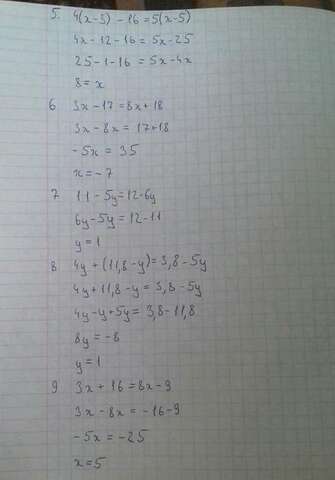 5. 4(x-3) - 16 = 5(x-5)
4x - 12 - 16 = 5x - 25
25 - 1 - 16 = 5x - 4x
8 = x
6 3x - 17 = 8x + 18
3x - 8x = 17 + 18
-5x = 35
x = -7
7 11 - 5y = 12 - 6y
6y - 5y = 12 - 11
y = 1
8 4y + (11,8 - y) = 3,8 - 5y
4y + 11,8 - y = 3,8 - 5y
4y - y + 5y = 3,8 - 11,8
8y = -8
y = 1
9 3x + 16 = 8x - 9
3x - 8x = -16 - 9
-5x = -25
x = 5